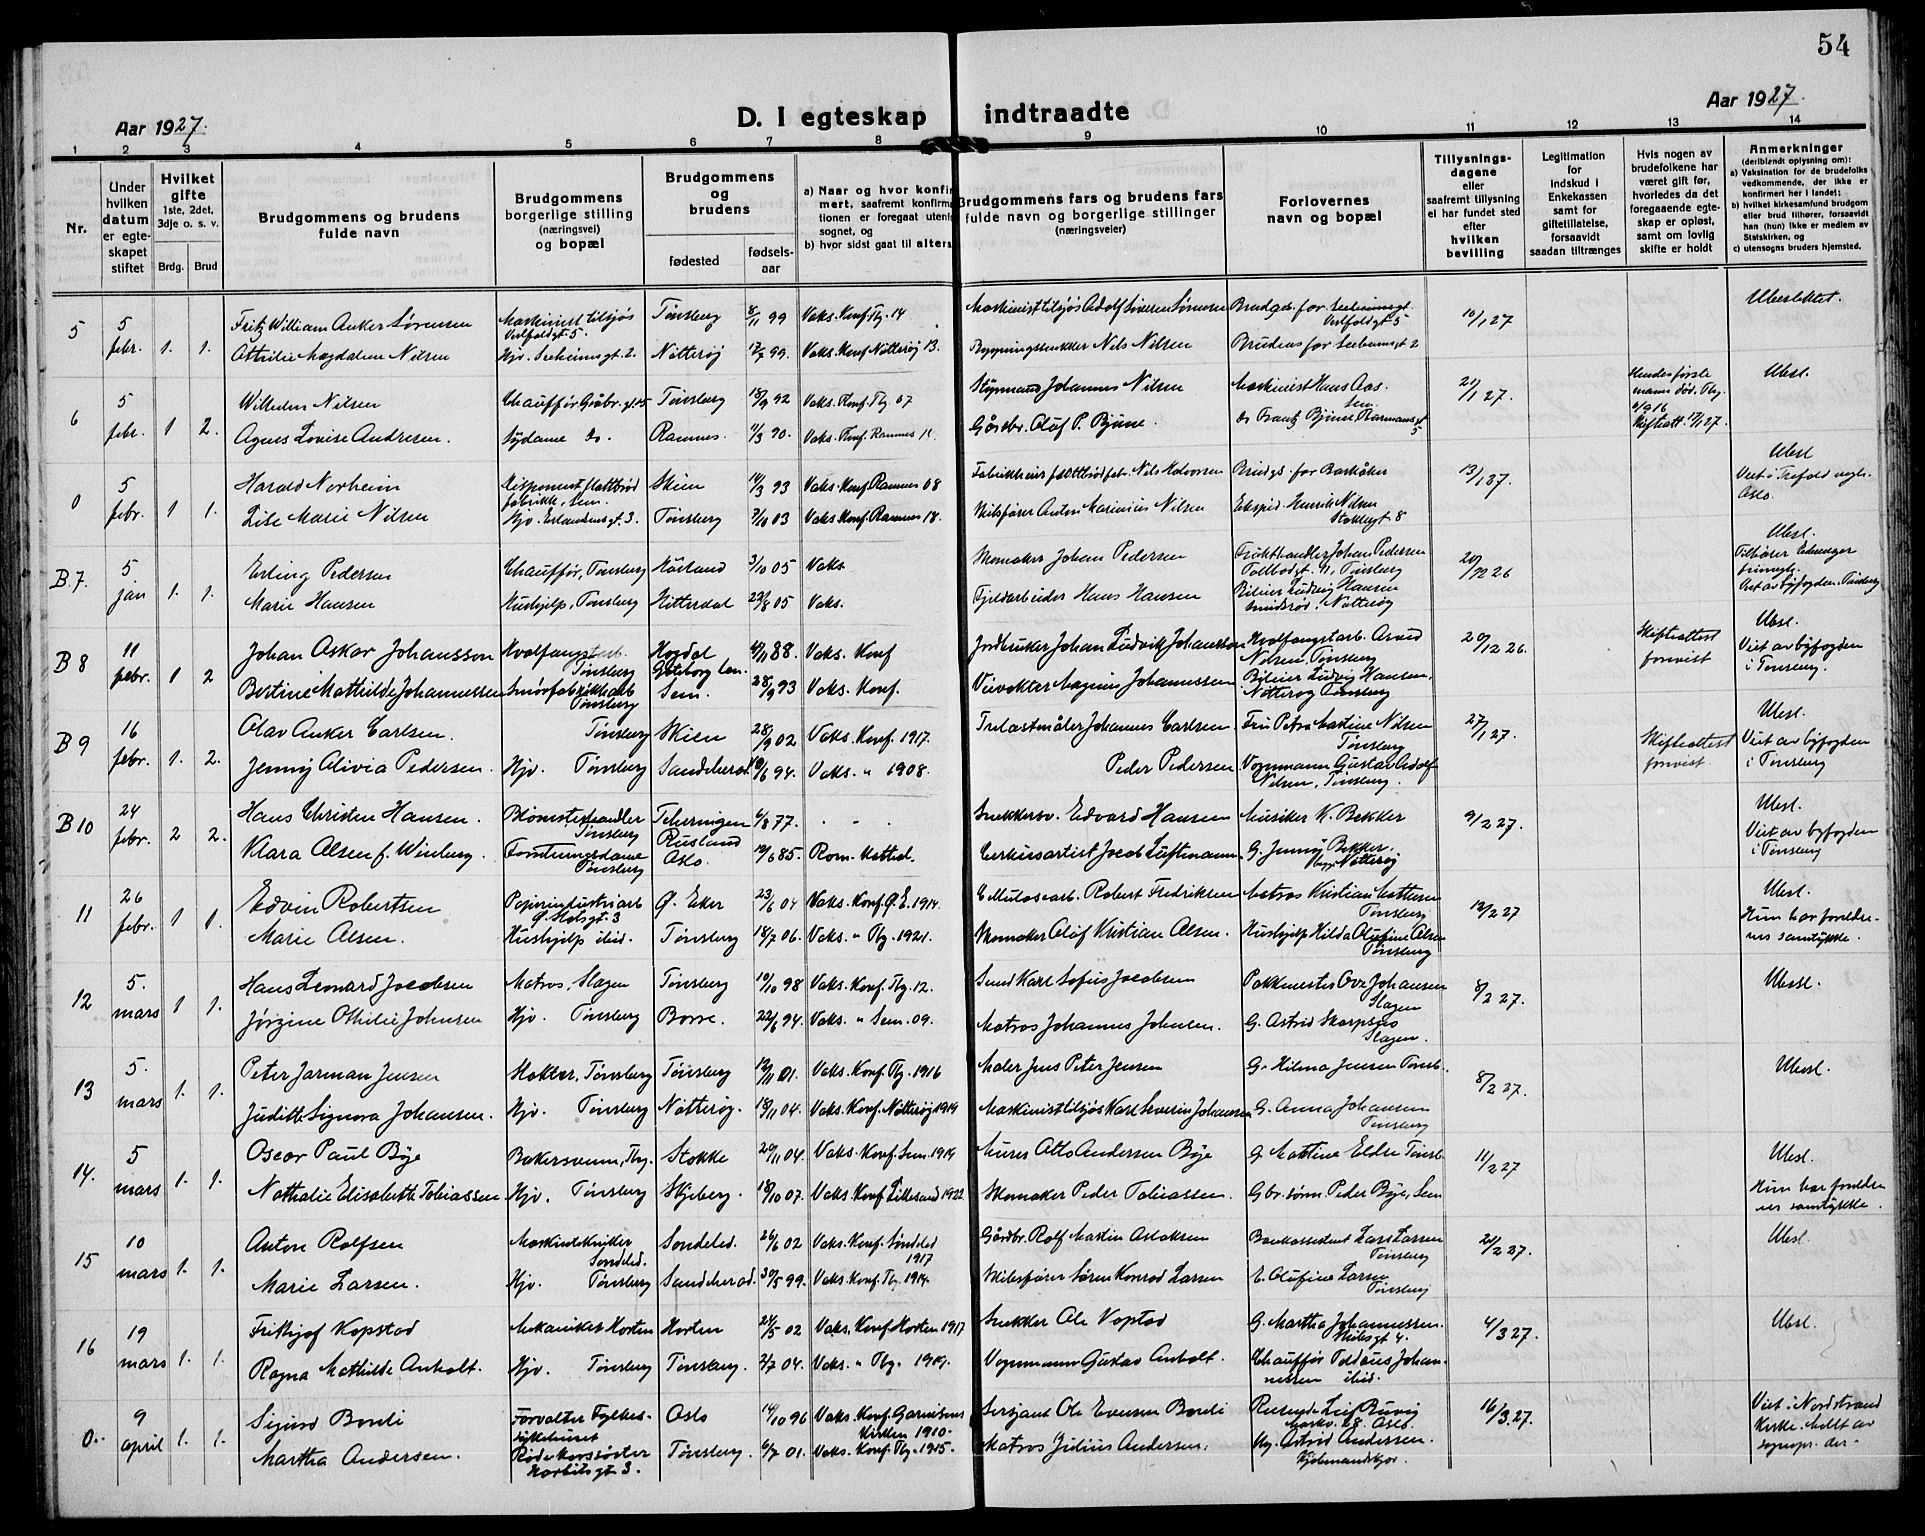 54
Aar 1927.
D. I egteskap indtraadte
Aar 1927.
1 2 3 4 5 6 7 8 9 10 11 12 13 14
Nr.
Under hvilken datum er egteskapet stiftet
Hvilket gifte 1ste, 2det, 3dje o. s. v.
Brdg. Brud
Brudgommens og brudens fulde navn
Brudgommens borgerlige stilling (næringsvei) og bopæl
Brudgommens og brudens
fødested
fødsels-aar
a) Naar og hvor konfir
mert, saafremt konfirma
tionen er foregaat utenfo
sognet, og
b) hvor sidst gaat til alters
Brudgommens fars og brudens fars fulde navn og borgerlige stillinger (næringsveier)
Forlovernes navn og bopæl
Tillysnings-dagene eller saafremt tillysning ei har fundet sted efter hvilken bevilling
Legitimation for indskud i Enkekassen samt for giftetillatelse, forsaavidt saadan tiltrænges
Hvis nogen av brudefolkene har været gift før, hvorledes da det foregaaende egteskap er opløst, samt om lovlig skifte er holdt
Anmerkninger (deriblandt oplysning om):
a) Vaksination for de brudefolks vedkommende, der ikke er konfirmert her i landet;
b) hvilket kirkesamfund brudgom eller brud tilhører, forsaavidt han (hun) ikke er medlem av Statskirken, og
c) utensogns bruders hjemsted.
5 5 febr. 1. 1.
Fritz William Anker Sørensen Maskinist tilsjøs Vestfoldgt 5. Tønsberg 8/11 99 Vaks. Konf. Tbg. 14 Maskinist tilsjøs Adolf Iversen Sørensen Brudgs. far Vestfoldgt 5 10/1 27 Ubeslektet.
Othilie Magdalene Nilsen Hjv. Seeheimsgt. 2. Nøtterøy 17/7 99. Vaks. Konf Nøtterøy 13. Bygningssnekker Nils Nilsen Brudens far Seeheimsgt 2
6 5 febr. 1 2.
Wilhelm Nilsen Chauffør Tønsberg 18/9 92 Vaks. Konf. Tbg 07 Styrmand Johannes Nilsen Maskinist Hans Aas. Sem. 21/1 27. Hendes første mann død. Tbg. Skifteatt. 17/1 27. Ubesl.
Agnes Lovise Andresen. Sydame do. Ramnes. 11/3 90. Vaks. Konf. Ramnes Gårdbr. Olaf P. Bjune. do Frantz Bjune
0 5 febr. 1 1.
Harald Norheim Disponent flattbrød fabrikk, Sem. Skien 14/3 93 Vaks. Konf Ramnes 08 Fabrikkeier flattbrødfabr. Nils Halvorsen Brudgs. far Barkåker 13/1 27. Ubesl Viet i Trefold. Oslo.
Lise Marie Nilsen Hjv. Erlandsensgt. 3. Tønsberg 7/10 03 Vaks. Konf. Ramnes 18. Skibsfører Anton Marinius Nilsen Ekspid. Henrik Nilsen Stoklegt 8
B 7. 5 jan 1. 1.
Erling Pedersen Chauffør, Tønsberg 3/10 05 Vaks Skomaker Johan Pedersen Frukthandler Johan Pedersen Tollbodgt. 11, Tønsberg 20/12 26 Ubesl. Viet av byfogden. Tønsberg
Marie Hansen Hushjelp, Tønsberg Hitterdal 23/8 05 Vaks. Fjeldarbeider Hans Hansen Bileier Ludvig Hansen Nøtterøy
B 8 11 febr. 1 2
Johan Oskar Johansson Hvalfangstarb. Tønsberg Hogdal Gøteborg len. 4/11 88. Vaks. Konf Jordbruker Johan Ludvik Johansson Hvalfangstarb. Arvid Nilsen, Tønsberg 20/12 26. Skifteattest forevist Ubesl. Viet av byfogden i Tønsberg.
Bertine Mathilde Johannessen Smørfabrikkarb Tønsberg Sem. 28/9 93 Vaks. Konf. Magnus Johannessen Bileier Ludvig Hansen, Nøtterøy Tønsberg
B 9 16 febr. 1. 2.
Olav Anker Carlsen. Tønsberg Skien 28/9 02 Vaks. Konf. 1917. Trelastmåler Johannes Carlsen. Fru Petra Martine Nilsen Tønsberg 27/1 27. Skifteattest forevist. Ubesl. Viet av byfogden i Tønsberg
Jenny Olivia Pedersen. Hjv. Tønsberg Sandeherad 10/6 94. Vaks. " 1908. Peder Pedersen Vognmann Gustav Adolf Nilsen, Tønsberg.
B 10 24 febr. 2 2.
Hans Christen Hansen. Blomsterhandler Tønsberg 6/8 77. Snekkersv. Edvard Hansen Musiker K. Bekker 9/2 27. Ubesl. Viet av byfogden i Tønsberg
Klara Olsen f. Winberg. Forretningsdame Tønsberg Rusland Oslo. 19/6 85. Rom. Kattol. Cirkusartist Jacob Luftmann. G. Jenny Bekker. Nøtterøy
11 26 febr. 1 1.
Edvin Robertsen Papirindustriarb Ø. Halsgt. 3 Ø. Eker 23/6 04 Vaks. Konf. Ø. E. 1914. Cellulosearb. Robert Fredriksen Matros Kristian Mathisen Tønsberg 12/2 27 Ubesl. Hun har foreldrenes samtykke.
Marie Olsen. Hushjelp ibid. Tønsberg 18/7 06. Vaks. " Tbg. 1921. Skomaker Olaf Kristian Olsen. Hushjelp Hilda Olufine Olsen Tønsberg
12 5. mars 1 1.
Hans Leonard Jacobsen Matros, Slagen Tønsberg 10/10 98 Vaks. Konf. Tbg. 12. Smed Karl Sofus Jacobsen Pakkmester Ove Johansen Slagen 8/2 27. Ubesl.
Jørgine Othilie Johnsen Hjv. Tønsberg Borre. 22/6 94. Vaks. " Sem. 09. Matros Johannes Johnsen. G. Astrid Skarpsno Slagen.
13 5. mars 1. 1.
Peter Jarman Jensen Slakter, Tønsberg Tønsberg 12/11 01. Vaks. Konf. Tbg. 1916 Maler Jens Peter Jensen G. Hilma Jensen Tønsb. 8/2 27. Ubesl.
Judith Signora Johansen. Hjv. Tønsberg Nøtterøy. 18/11 04. Vaks. Konf. Nøtterøy 1919 Maskinist tilsjøs Karl Severin Johansen G. Anna Johansen Tønsberg
14. 5 mars 1. 1.
Oscar Paul Bøe Bakersvenn, Tbg. Stokke 20/11 04. Vaks. Konf. Sem. 1919 Murer Otto Andersen Bøe G. Martine Eldre Tønsb. 11/2 27 Ubesl. Hun har foreldrenes samtykke.
Nathalie Elisabeth Tobiassen Hjv. Tønsberg Skjeberg. 18/10 07. Vaks. Konf Lillesand 1922 Skomaker Peder Tobiassen. Gbr. sønn Peder Bøe, Sem
15 10 mars 1. 1.
Anton Rolfsen Søndeled. Søndeled. 26/6 02 Vaks. Konf. Søndeled 1917 Gårdbr. Rolf Martin Aslaksen Lars Larsen Tønsberg 21/2 27. Ubesl.
Marie Larsen. Hjv. Tønsberg Sandeherad. 30/5 99. Vaks. Konf. Tbg. 1914. Skibsfører Søren Konrad Larsen E. Olufine Larsen Tønsberg
16 19 mars 1. 1.
Frithjof Kopstad Mekaniker Horten Horten 24/5 02 Vaks. Konf. Horten 1917 Snekker Ole Kopstad G. Martha Johannessen. 4/3 27. Ubesl.
Ragna Mathilde Anholt. Hjv. Tønsberg Tønsberg. 2/7 04. Vaks. " Tbg. 1919. Vognmann Gustav Anholt. Chauffør Johannessen ibid.
0. 9 april 1. 1.
Sigurd Bordi Forvalter Fylkessykehuset Oslo 14/10 96 Vaks. Konf. Garnisons kirken 1910. Sersjant Ole Evensen Bordi Reisende Leif Ruvig Oslo. 16/3 27. Viet i Nordstrand Kirke. Meldt av sognepr. der.
Martha Andersen. Røde korssøster 3. Tønsberg. 6/7 01. Vaks. Konf. Tbg. 1915. Matros Julius Andersen. Astrid Andersen.